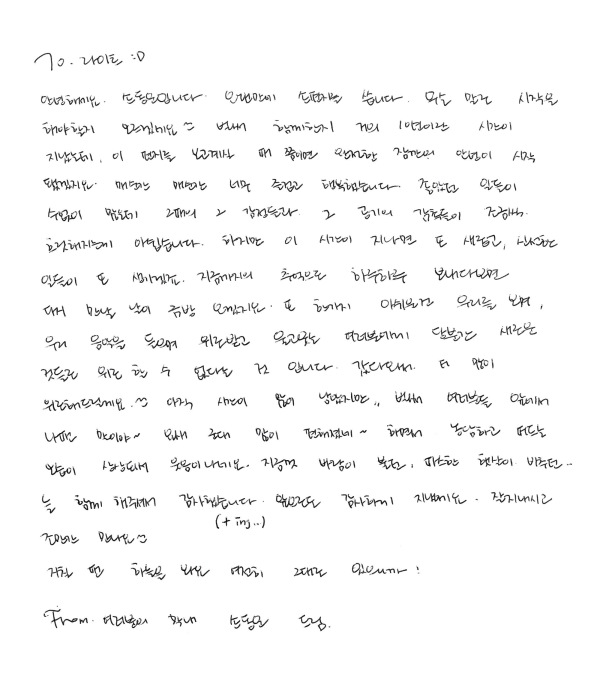 To. 라이트 :D
안녕하세요. 손동운입니다. 오랜만에 손편지를 씁니다. 무슨 말로 시작을
해야할지 모르겠네요 ㅎ 벌써 함께한지 거의 10년이란 시간이
지났는데, 이 편지를 보고계실 때 쯤이면 완전한 잠깐의 안녕이 시작
됐겠지요. 매년 매번 너무 즐겁고 행복했습니다. 좋았던 일들이
수없이 많은데 그때의 그 감정들과 그 공기의 감촉들이 조금씩
흐릿해지는게 아쉽습니다. 하지만 이 시간이 지나면 또 새롭고, 신선한
일들이 또 생기겠죠. 지금까지의 추억으로 하루하루 보내다보면
다시 만날 날이 금방 오겠지요. 또 한가지 아쉬운건 우리를 보며,
우리 음악을 들으며 위로받고 울고웃는 여러분에게 당분간 새로운
것들로 위로 할 수 없다는 것 입니다. 갔다와서 더 많이
위로해드릴게요. ㅎ 아직 시간이 많이 남았지만,, 벌써 여러분들 앞에서
나때는 말이야~ 요새 군대 많이 편해졌네~ 하면서 농담하고 떠드는
모습이 상상돼서 웃음이나네요. 지금껏 바람이 불던, 따스한 햇살이 비추던..
늘 함께 해주셔서 감사했습니다. 앞으로도 감사하며 지낼게요. 잘지내시고
(+ ing..)
조만간 만나요 ㅎ
저희 뜬 하늘을 봐요 여전히 그대로 있으니까!
From. 여러분의 막내 손동운 드림.